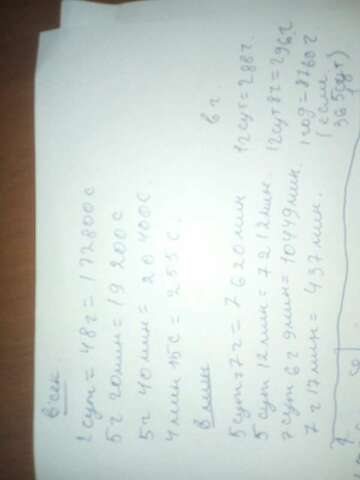 в сек.
2 сут = 48 г = 172800 с
5 г 20 мин = 19 200 с
5 г 40 мин = 20 400 с.
4 мин 15 с = 255 с.
в мин
5 сут 7 г = 7 620 мин
5 сут 12 мин = 7 212 мин.
7 сут 6 г 9 мин = 10449 мин.
7 г 17 мин = 437 мин.
в г.
12 сут = 288 г.
12 сут 8 г = 296 г
1 год = 8760 г
(если
365 сут)